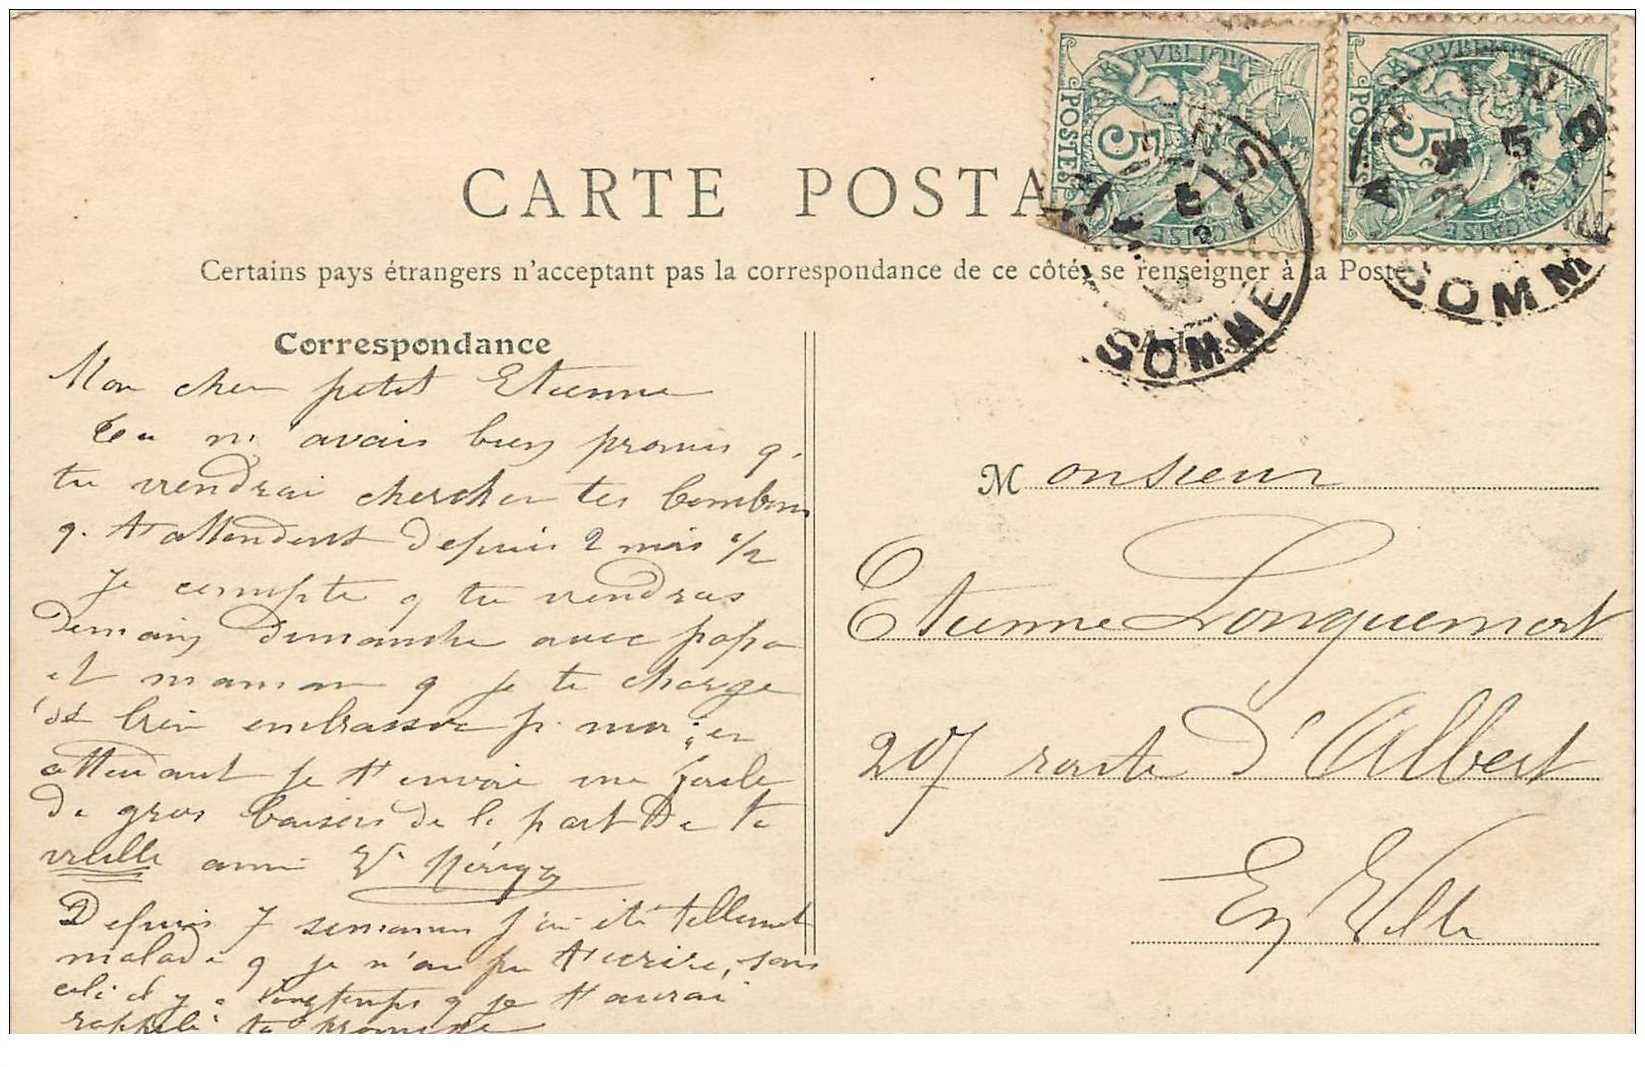 CARTE POSTA
Certains pays étrangers n'acceptant pas la correspondance de ce côté, se renseigner à la Poste
RÉPUBLIQUE FRANÇAISE
POSTES
5c
SOMME
RÉPUBLIQUE FRANÇAISE
POSTES
5c
AMIENS
SOMME
Correspondance
Mon cher petit Etienne
Tu m'avais bien promis q.
tu viendrai chercher tes bonbons
q. t'attendent depuis 2 mois 1/2
Je compte q tu viendras
demain dimanche avec papa
et maman q je te charge
de bien embrasser p. moi; en
attendant je t'envoie une foule
de gros baisers de la part de ta
vieille amie
Depuis 7 semaines j'ai été tellement
malade q je n'ai pu t'écrire, sans
cela il y a longtemps q je t'aurai
rappelé ta promesse
Monsieur
Etienne Longuemart
207 route d'Albert
En Ville